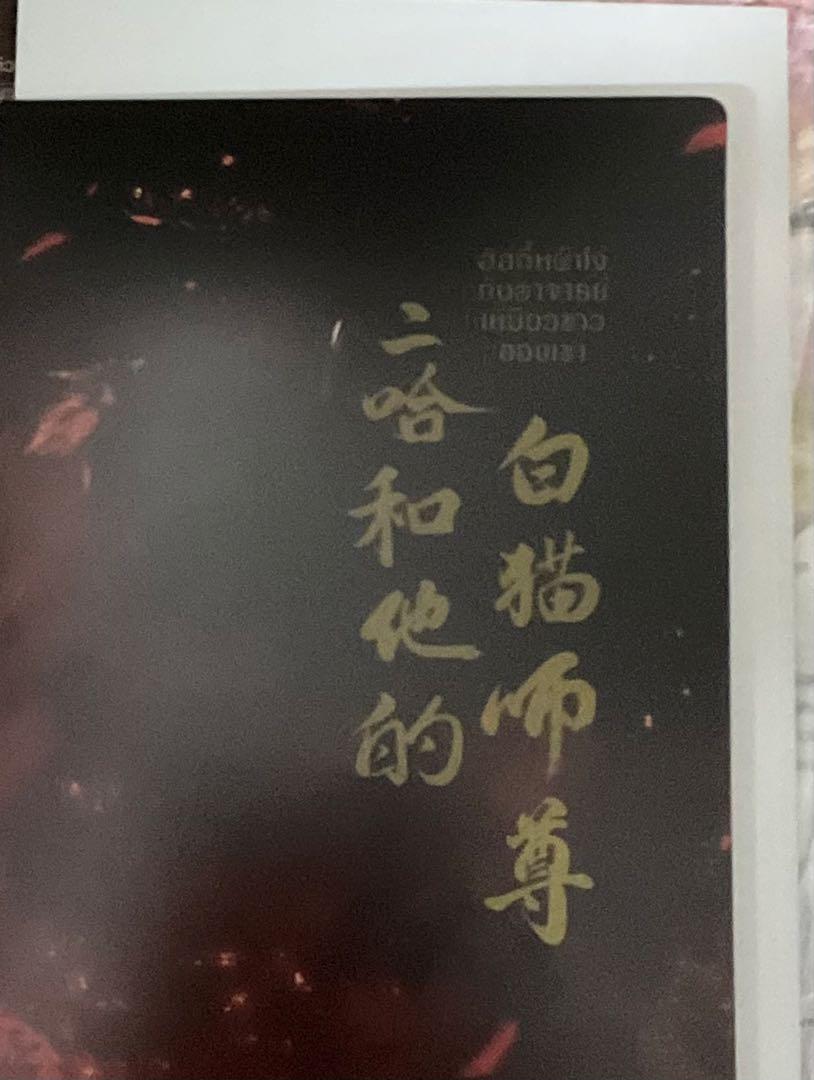 ฮัสกี้หน้าโง่
กับอาจารย์
เหมียวขาว
ของเขา
二哈和他的
白猫师尊